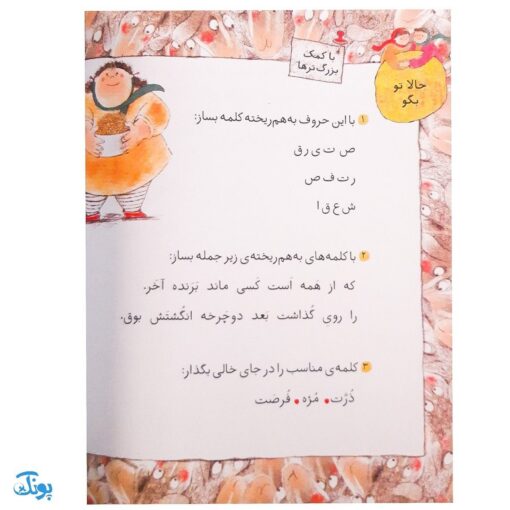 با کمک
بزرگ‌ترها
حالا تو
بگو
۱ با این حروف به‌هم‌ریخته کلمه بساز:
ص ت ی ر ق
ر ت ف ص
ش ع ق ا
۲ با کلمه‌های به‌هم‌ریخته‌ی زیر جمله بساز:
که از هَمه اَست کَسی ماند بَرنده آخَر.
را روی گُذاشت بَعد دوچَرخه انگُشتش بوق.
۳ کلمه‌ی مناسب را در جای خالی بگذار:
ذُرَّت • مَزه • فُرصَت
پونک